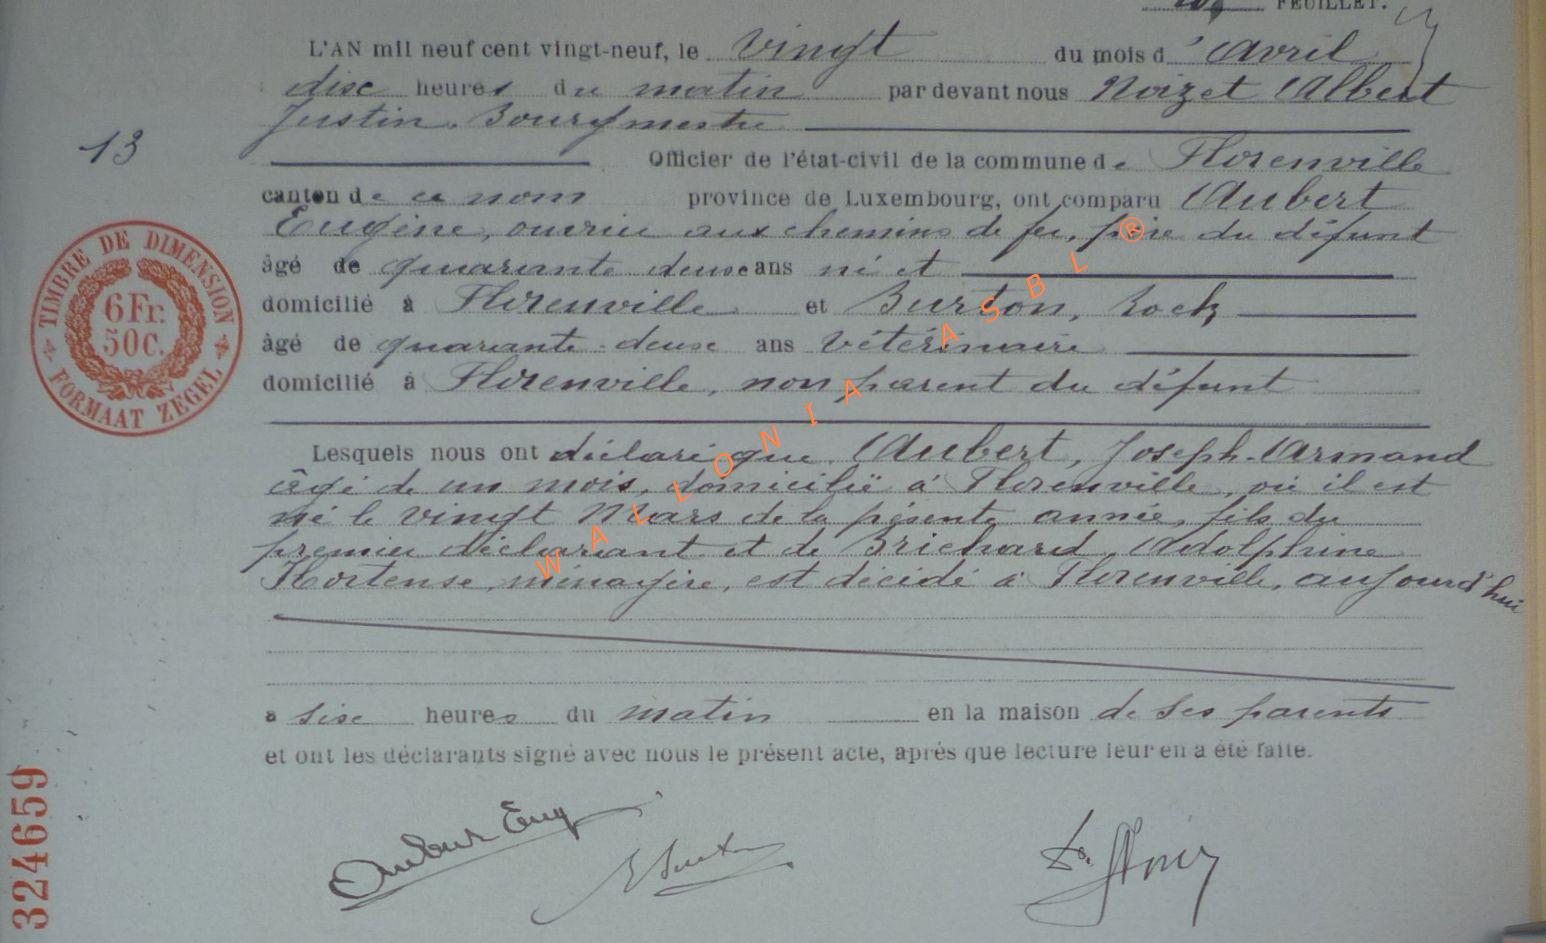 FEUILLET.
L'AN mil neuf cent vingt-neuf, le vingt du mois d'Avril
dix heures du matin par devant nous Noizet Albert
Justin, Bourgmestre
13
Officier de l'état-civil de la commune de Florenville
canton de ce nom province de Luxembourg, ont comparu Aubert
Eugène, ouvrier aux chemins de fer, père du défunt
âgé de quarante deux ans né et
domicilié à Florenville et Burton, Rock,
âgé de quarante-deux ans vétérinaire
domicilié à Florenville, non parent du défunt
Lesquels nous ont déclaré que Aubert, Joseph-Armand
âgé de un mois, domicilié à Florenville, où il est
né le vingt Mars de la présente année, fils du
premier déclarant et de Brichard, Adolphine
Hortense, ménagère, est décédé à Florenville, aujourd'hui
à six heures du matin en la maison de ses parents
et ont les déclarants signé avec nous le présent acte, après que lecture leur en a été faite.
Aubert Eug
TIMBRE DE DIMENSION
6 Fr.
50 C.
FORMAAT ZEGEL
324659
WALLONIA ASBL ®